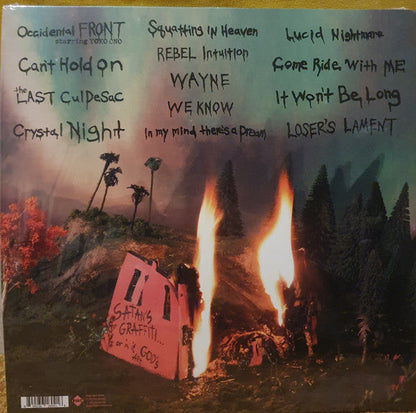 Occidental FRONT
starring YOKO ONO
Can't Hold on
the LAST CulDeSac
Crystal Night
Squatting in Heaven
REBEL Intuition
WAYNE
WE KNOW
in my mind there's a Dream
Lucid Nightmare
Come Ride With ME
It Won't Be Long
LOSER'S LAMENT
SATAN'S
GRAFFITI...
or is it GOD'S